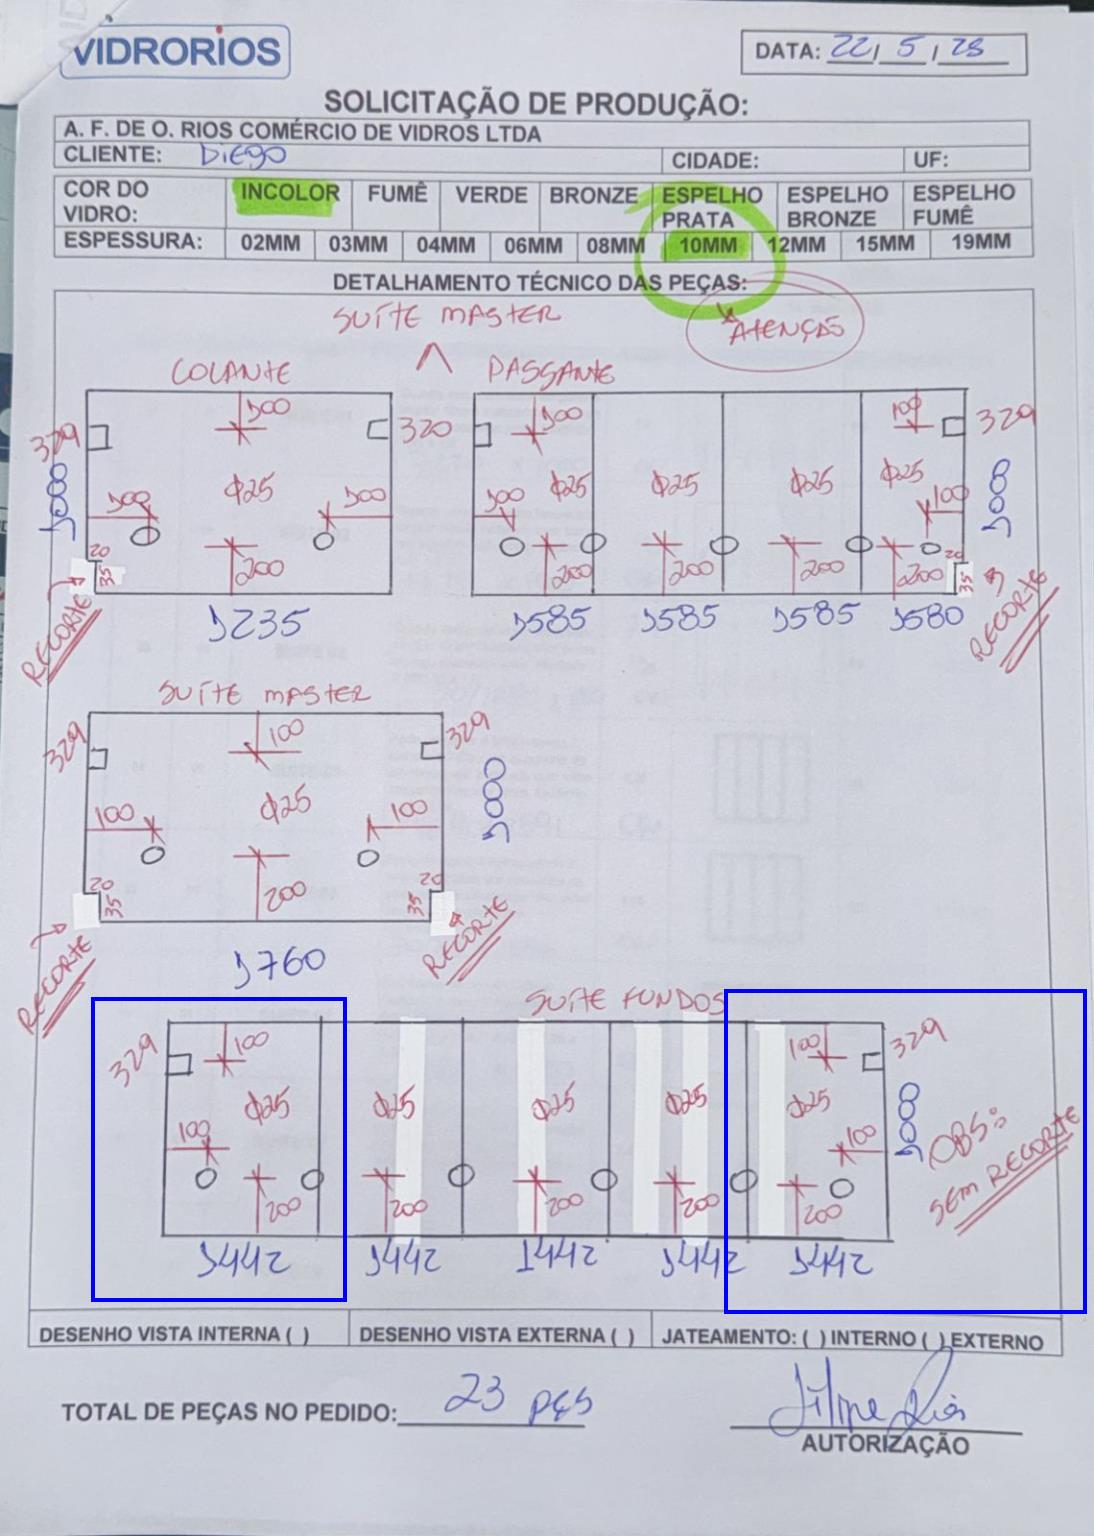 VIDRORIOS
DATA: 22/5/25
SOLICITAÇÃO DE PRODUÇÃO:
A. F. DE O. RIOS COMÉRCIO DE VIDROS LTDA
CLIENTE: Diego CIDADE: UF:
COR DO VIDRO: INCOLOR FUMÊ VERDE BRONZE ESPELHO PRATA ESPELHO BRONZE ESPELHO FUMÊ
ESPESSURA: 02MM 03MM 04MM 06MM 08MM 10MM 12MM 15MM 19MM
DETALHAMENTO TÉCNICO DAS PEÇAS:
SUÍTE MASTER
ATENÇÃO
COLANTE PASSANTE
100 100 100
329 320 329
1000 Φ25 Φ25 Φ25 Φ25 Φ25 1000
100 100 100 100
20 20
35 200 200 200 200 200 35
RECORTE 1235 1585 1585 1585 1580 RECORTE
SUÍTE MASTER
329 100 329
Φ25 1000
100 100
20 20
35 200 35
RECORTE 1760 RECORTE
SUÍTE FUNDOS
329 100 100 329
Φ25 Φ25 Φ25 Φ25 Φ25 1000
100 100 OBS:
SEM RECORTE
200 200 200 200 200
1442 1442 1442 1442 1442
DESENHO VISTA INTERNA ( ) DESENHO VISTA EXTERNA ( ) JATEAMENTO: ( ) INTERNO ( ) EXTERNO
TOTAL DE PEÇAS NO PEDIDO: 23 pçs
Filipe Rios
AUTORIZAÇÃO